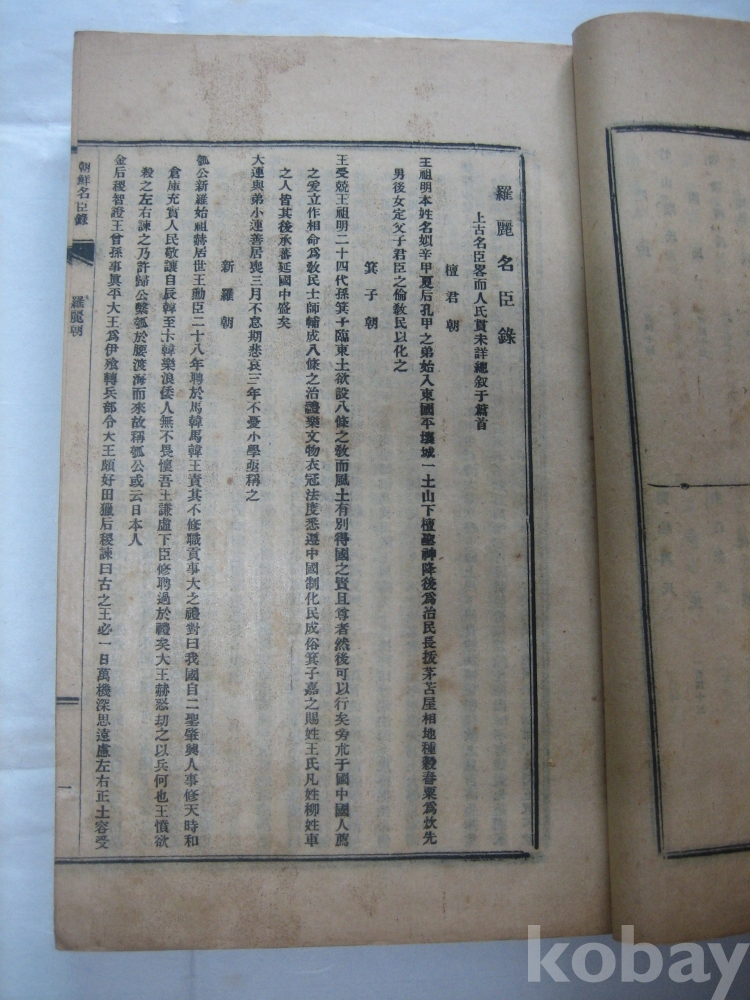 羅麗名臣錄
上古名臣畧而人氏貫未詳總叙于篇首
檀君朝
王祖明本姓名姒辛甲夏后孔甲之弟始入東國平壤城一土山下檀聖神降後爲治民長援茅苫屋相地種穀舂粟爲炊先
男後女定父子君臣之倫敎民以化之
箕子朝
王受兢王祖明二十四代孫箕子臨東土欲設八條之敎而風土有別得國之賢且尊者然後可以行矣旁求于國中國人薦
之爰立作相命爲敎民士師輔成八條之治禮樂文物衣冠法度悉遵中國制化民成俗箕子嘉之賜姓王氏凡姓柳姓車
之人皆其後承蕃延國中盛矣
大連與弟小連善居喪三月不怠期悲哀三年不憂小學亟稱之
新羅朝
瓠公新羅始祖赫居世王勳臣二十八年聘於馬韓馬韓王責其不修職貢事大之禮對曰我國自二聖肇興人事修天時和
倉庫充實人民敬讓自辰韓至卞韓樂浪倭人無不畏懷吾王謙虛下臣修聘過於禮矣大王赫怒劫之以兵何也王憤欲
殺之左右諫之乃許歸公繫瓠於腰渡海而來故稱瓠公或云日本人
金后稷智證王曾孫事眞平大王爲伊飱轉兵部令大王頗好田獵后稷諫曰古之王必一日萬機深思遠慮左右正士容受
朝鮮名臣錄
羅麗朝
一
kobay